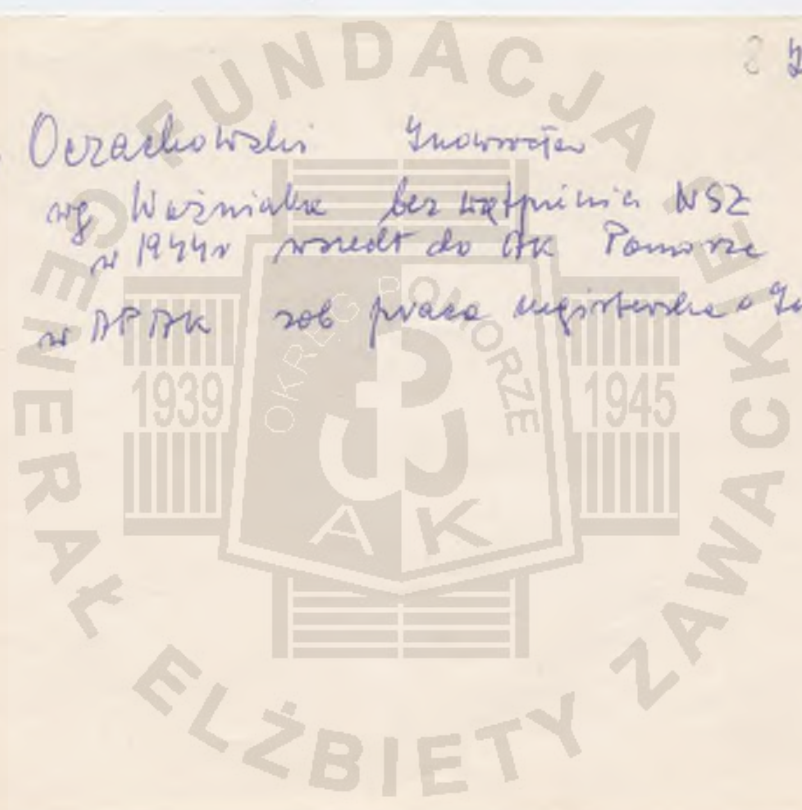 8
Oczachowski Inowrocław
wg Woźniaka bez wątpienia NSZ
w 1944r wszedł do AK Pomorze
w AP AK zob praca magisterska o
FUNDACJA
GENERAŁ ELŻBIETY ZAWACKIEJ
OKRĘG POMORZE
1939 1945
AK